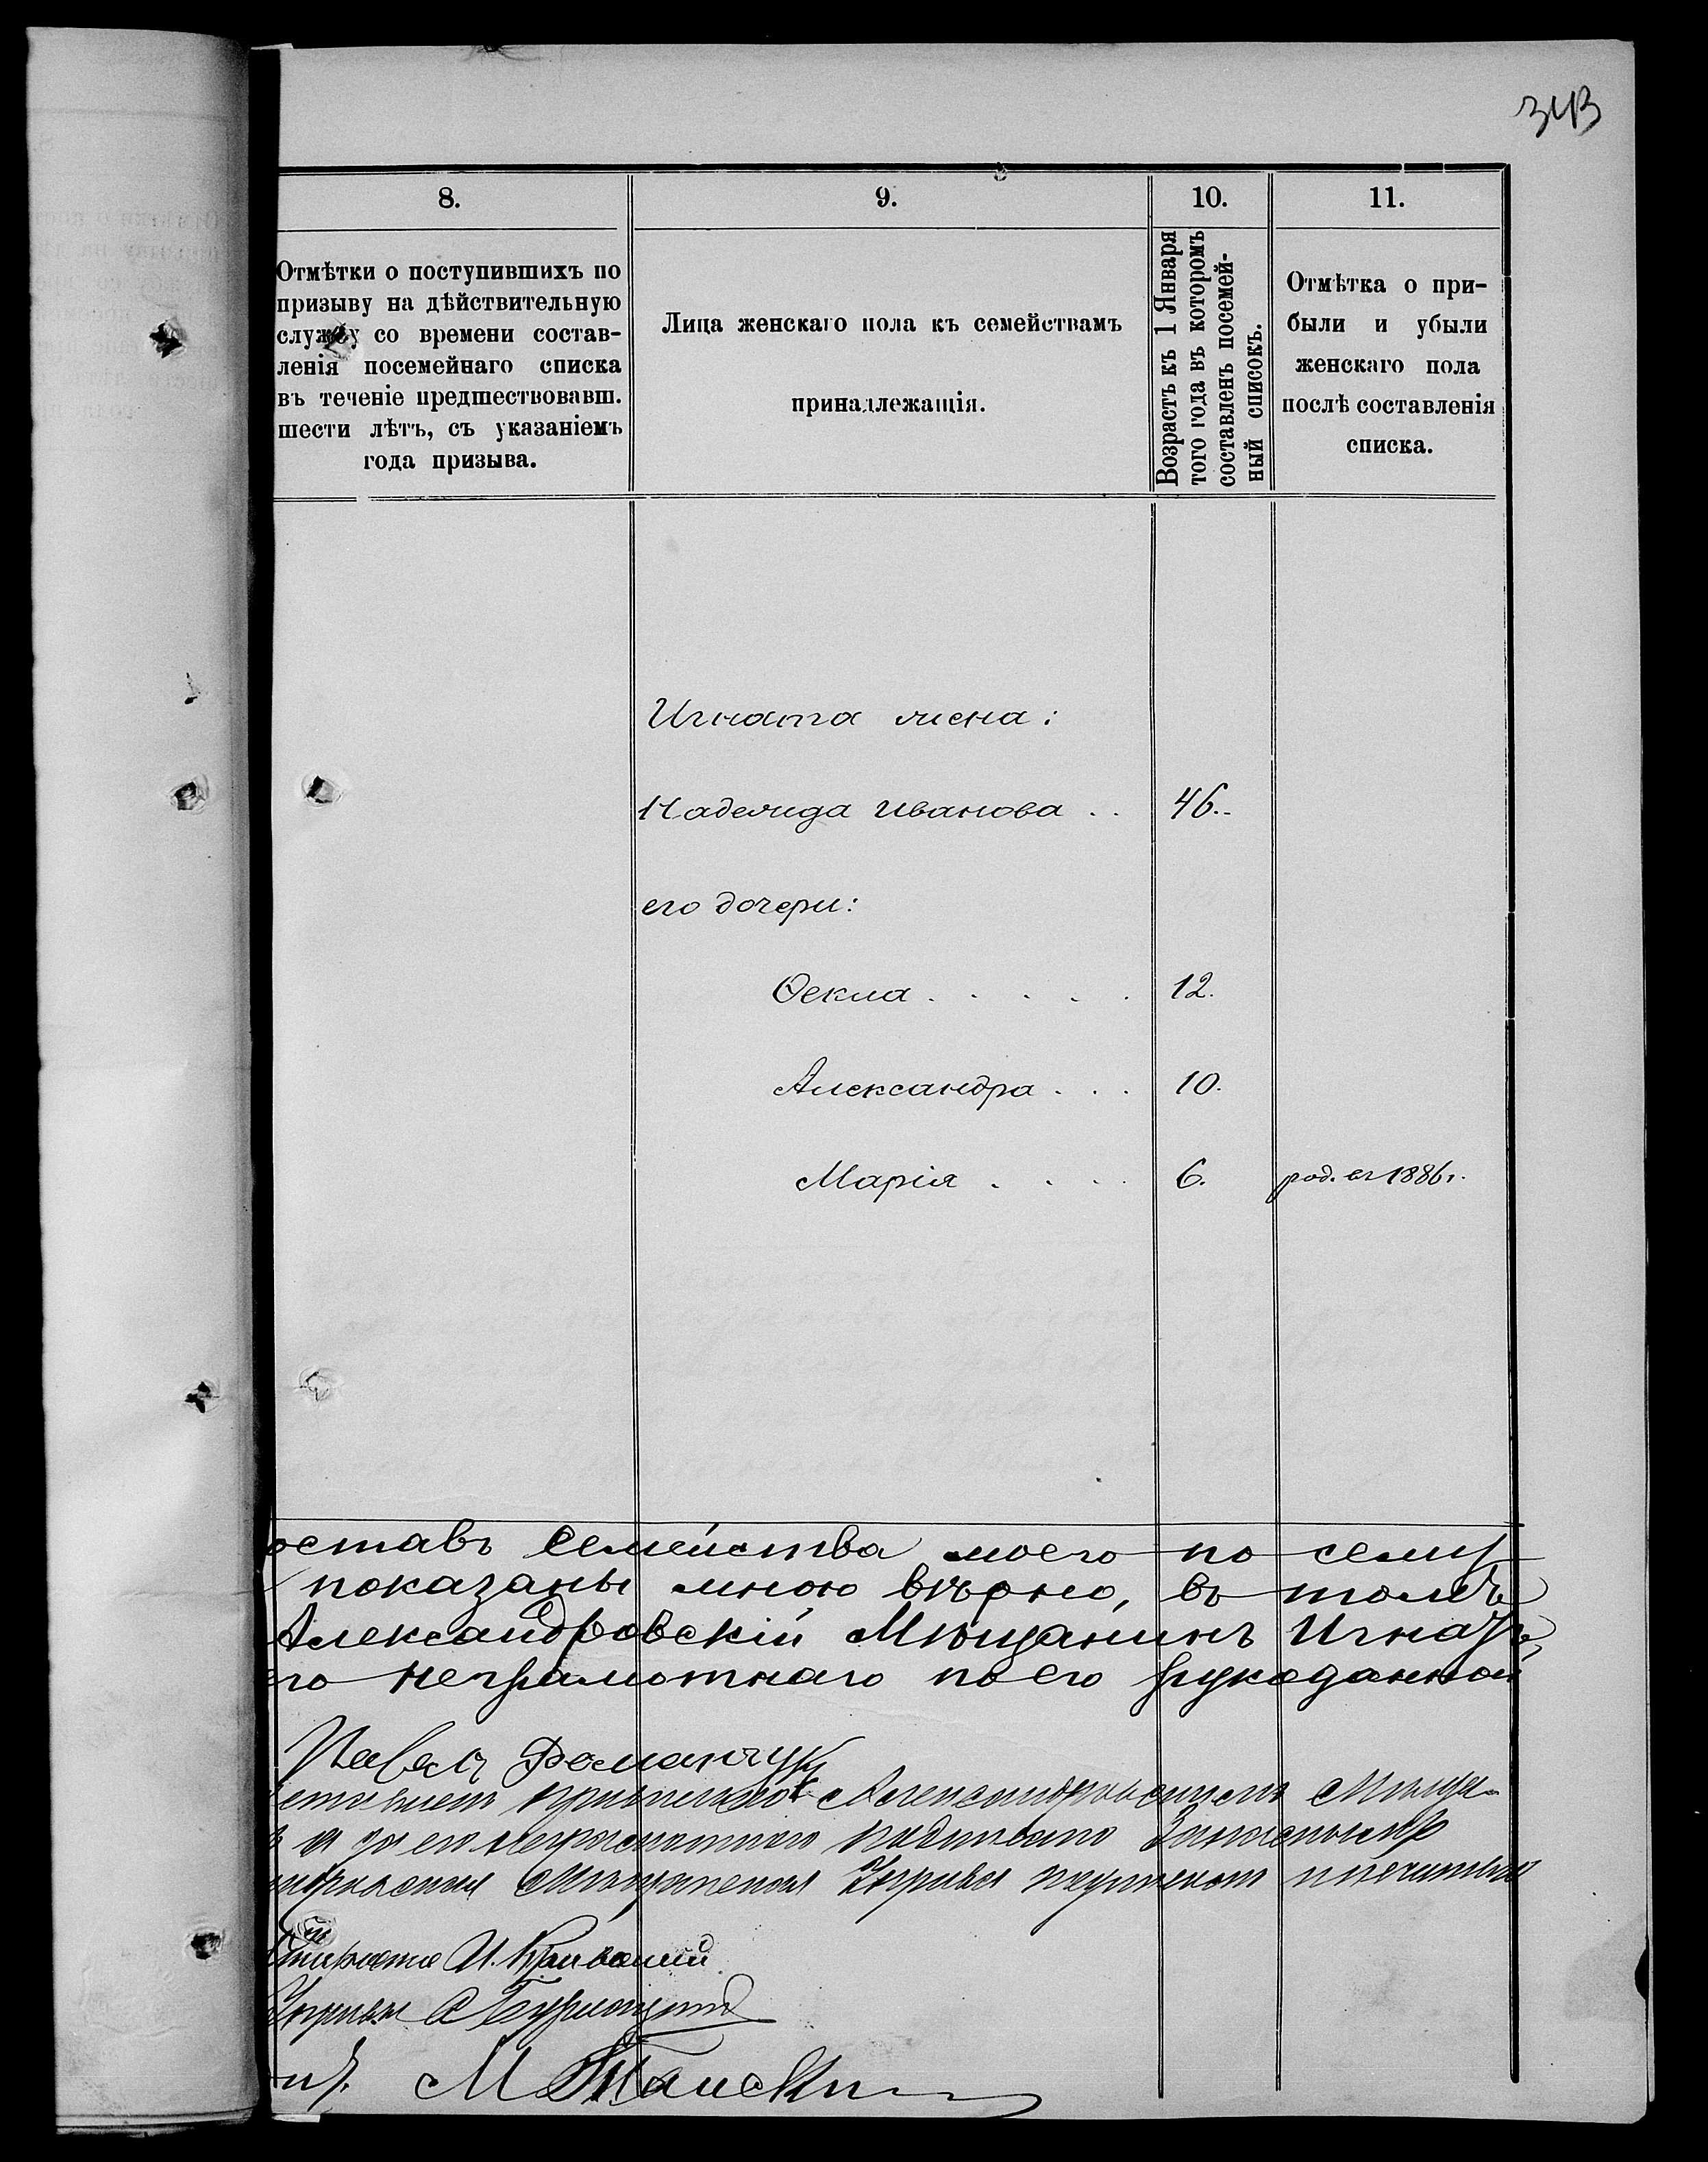 343
8. 9. 10. 11.
Отмѣтки о поступившихъ по
призыву на дѣйствительную
службу со времени состав-
ленія посемейнаго списка
въ теченіе предшествовавш.
шести лѣтъ, съ указаніемъ
года призыва.
Лица женскаго пола къ семействамъ
принадлежащія.
Возрастъ къ 1 Января
того года въ которомъ
составленъ посемей-
ный списокъ.
Отмѣтка о при-
были и убыли
женскаго пола
послѣ составленія
списка.
Игната жена:
Надежда Иванова . . 46.-
его дочери:
Ѳекла . . . . . 12.
Александра . . . 10.
Марія . . . . 6. род. въ 1886г.
оставъ семейства моего по сему
показаны мною вѣрно, въ томъ
Александровскій Мѣщанинъ Игнатъ
его неграмотнаго по его рукоданной
Павелъ Романчукъ
Александровскимъ Мѣща-
и за его неграмотнаго подписано
Управа
Староста И.
Управы
М.